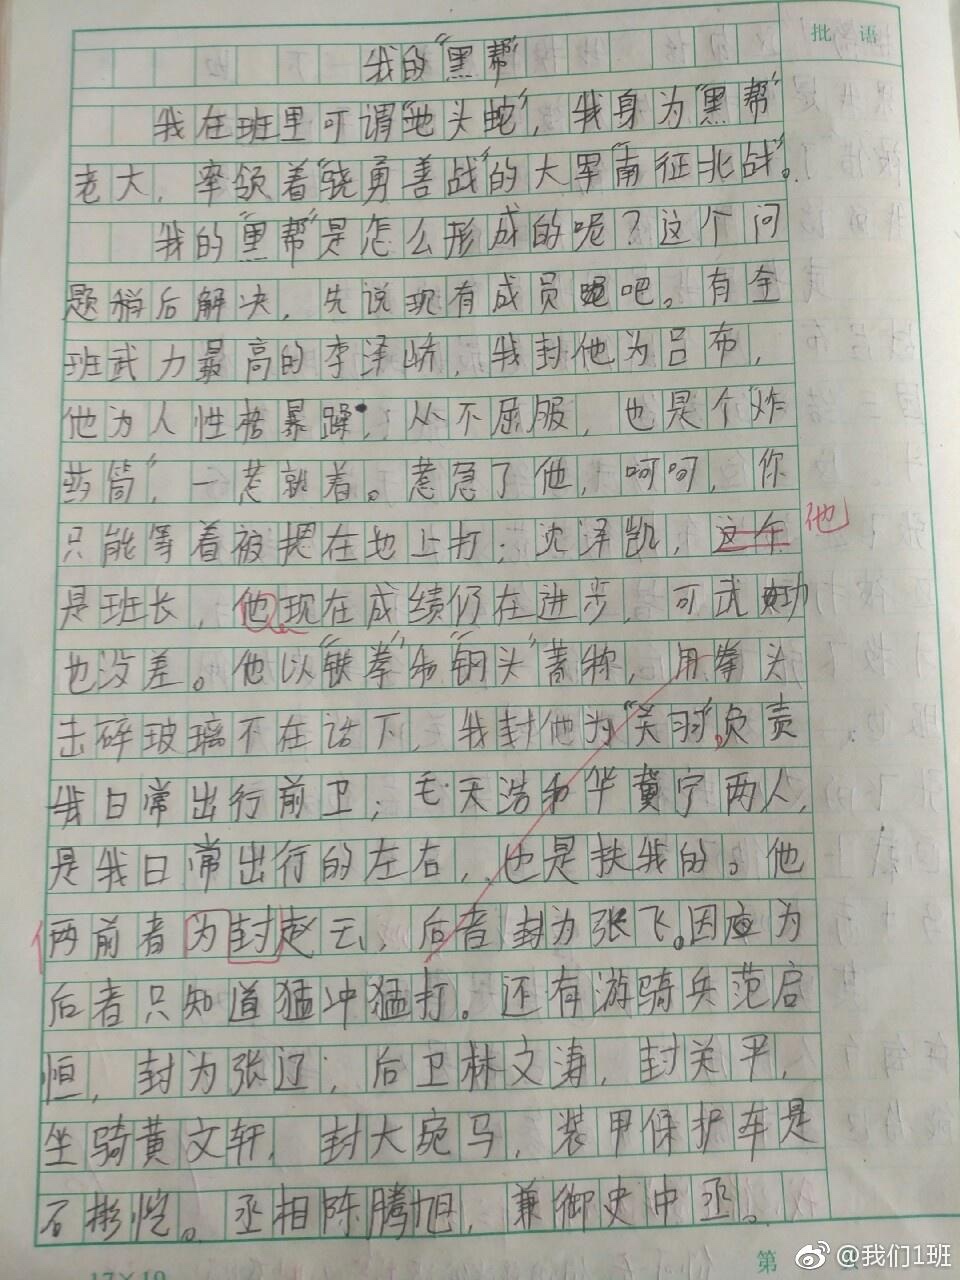 批语
我的"黑帮"
我在班里可谓"地头蛇"，我身为"黑帮"
老大，率领着"骁勇善战"的大军"南征北战"。
我的"黑帮"是怎么形成的呢？这个问
题稍后解决，先说现有成员吧。有全
班武力最高的李泽峤，我封他为吕布，
他为人性格暴躁，从不屈服，也是个"炸
药筒"，一惹就着。惹急了他，呵呵，你
只能等着被摁在地上打；沈泽凯，这年他
是班长，他现在成绩仍在进步，可武功
也没差。他以"铁拳"和"钢头"著称，用拳头
击碎玻璃不在话下，我封他为"关羽"。负责
我日常出行前卫；毛天浩和华冀宁两人，
是我日常出行的左右，也是扶我的。他
俩前者为封赵云，后者封为张飞。因为
后者只知道猛冲猛打。还有游骑兵范启
恒，封为张辽；后卫林文涛，封关平，
坐骑黄文轩，封大宛马，装甲保护车是
石彬恺。丞相陈腾旭，兼御史中丞。
17×19
第
@我们1班